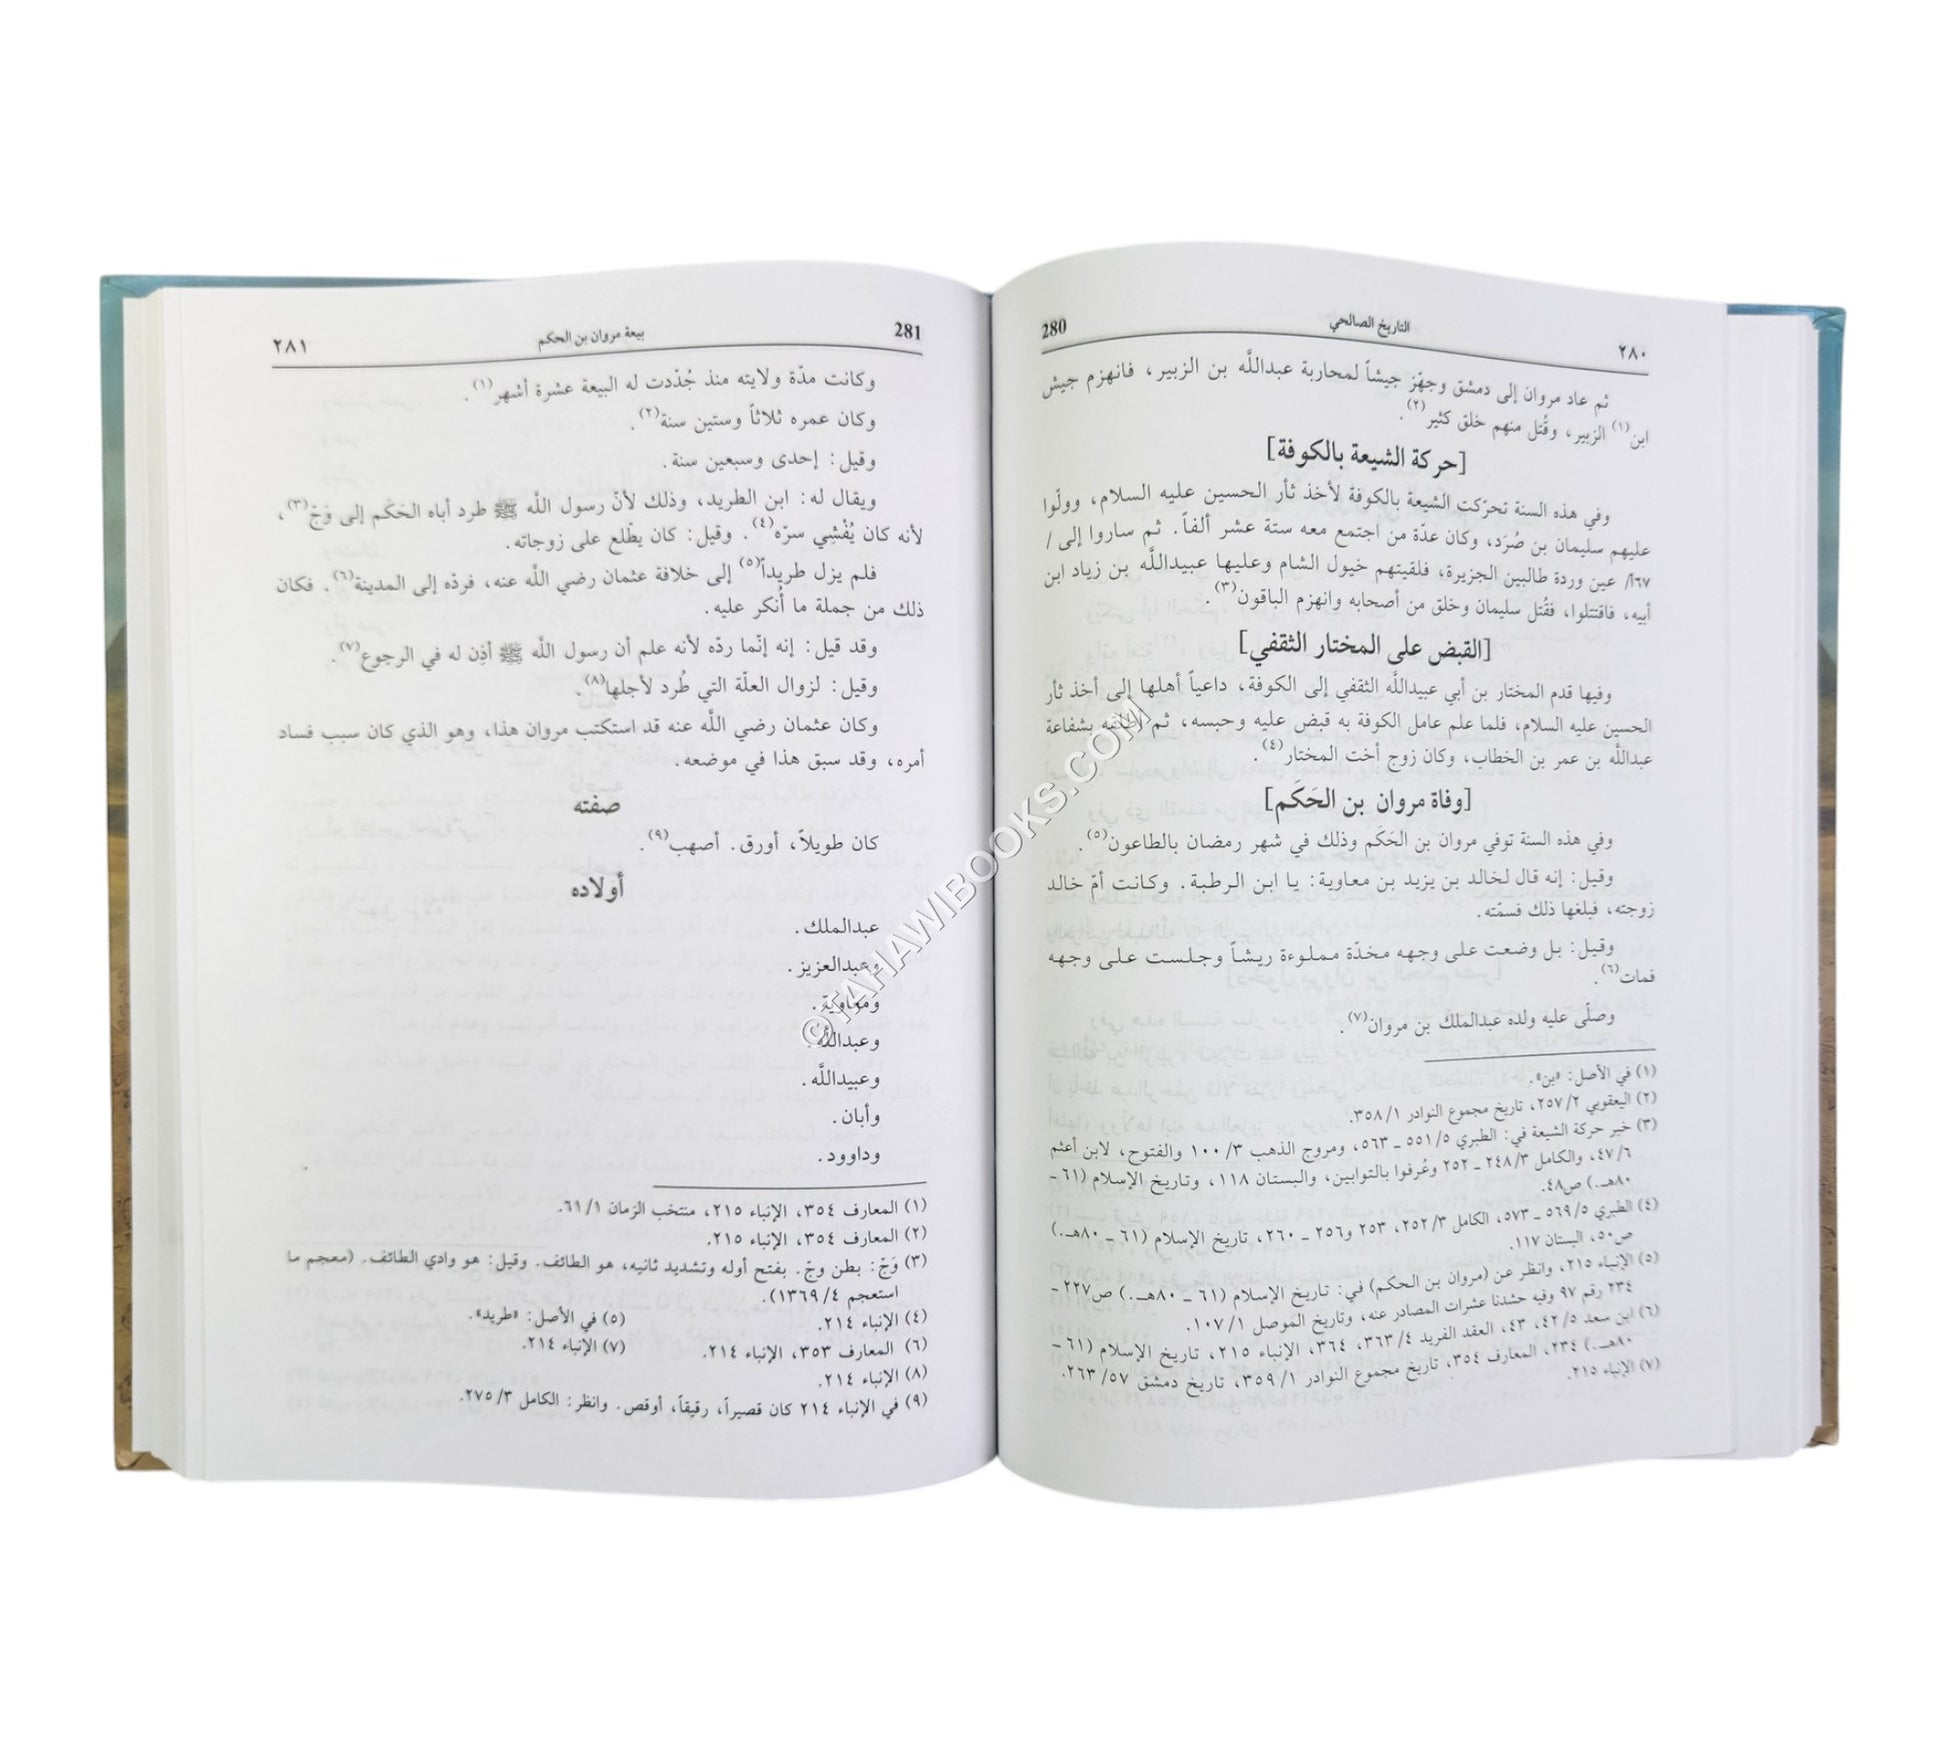 ٢٨٠ التاريخ الصالحي 280
ثم عاد مروان إلى دمشق وجهّز جيشاً لمحاربة عبداللَّه بن الزبير، فانهزم جيش
ابن(١) الزبير، وقُتل منهم خلق كثير(٢).
[حركة الشيعة بالكوفة]
وفي هذه السنة تحرّكت الشيعة بالكوفة لأخذ ثأر الحسين عليه السلام، وولّوا
عليهم سليمان بن صُرَد، وكان عدّة من اجتمع معه ستة عشر ألفاً. ثم ساروا إلى /
٦٧أ/ عين وردة طالبين الجزيرة، فلقيتهم خيول الشام وعليها عبيداللَّه بن زياد ابن
أبيه، فاقتتلوا، فقُتل سليمان وخلق من أصحابه وانهزم الباقون(٣).
[القبض على المختار الثقفي]
وفيها قدم المختار بن أبي عبيداللَّه الثقفي إلى الكوفة، داعياً أهلها إلى أخذ ثأر
الحسين عليه السلام، فلما علم عامل الكوفة به قبض عليه وحبسه، ثم أطلقه بشفاعة
عبداللَّه بن عمر بن الخطاب، وكان زوج أخت المختار(٤).
[وفاة مروان بن الحَكَم]
وفي هذه السنة توفي مروان بن الحَكَم وذلك في شهر رمضان بالطاعون(٥).
وقيل: إنه قال لخالد بن يزيد بن معاوية: يا ابن الرطبة. وكانت أمّ خالد
زوجته، فبلغها ذلك فسمّته.
وقيل: بل وضعت على وجهه مخدّة مملوءة ريشاً وجلست على وجهه
فمات(٦).
وصلّى عليه ولده عبدالملك بن مروان(٧).
(١) في الأصل: «بن».
(٢) اليعقوبي ٢/ ٢٥٧، تاريخ مجموع النوادر ١/ ٣٥٨.
(٣) خبر حركة الشيعة في: الطبري ٥/ ٥٥١ ـ ٥٦٣، ومروج الذهب ٣/ ١٠٠ والفتوح، لابن أعثم
٦/ ٤٧، والكامل ٣/ ٢٤٨ ـ ٢٥٢ وعُرفوا بالتوابين، والبستان ١١٨، وتاريخ الإسلام (٦١ ـ
٨٠هـ.) ص٤٨.
(٤) الطبري ٥/ ٥٦٩ ـ ٥٧٣، الكامل ٣/ ٢٥٢، ٢٥٣ و٢٥٦ ـ ٢٦٠، تاريخ الإسلام (٦١ ـ ٨٠هـ.)
ص٥٠، البستان ١١٧.
(٥) الإنباء ٢١٥، وانظر عن (مروان بن الحكم) في: تاريخ الإسلام (٦١ ـ ٨٠هـ.) ص٢٢٧ ـ
٢٣٤ رقم ٩٧ وفيه حشدنا عشرات المصادر عنه، وتاريخ الموصل ١/ ١٠٧.
(٦) ابن سعد ٥/ ٤٢، ٤٣، العقد الفريد ٤/ ٣٦٣، ٣٦٤، الإنباء ٢١٥، تاريخ الإسلام (٦١ ـ
٨٠هـ.) ٢٣٤، المعارف ٣٥٤، تاريخ مجموع النوادر ١/ ٣٥٩، تاريخ دمشق ٥٧/ ٢٦٣.
(٧) الإنباء ٢١٥.
281 بيعة مروان بن الحكم ٢٨١
وكانت مدّة ولايته منذ جُدّدت له البيعة عشرة أشهر(١).
وكان عمره ثلاثاً وستين سنة(٢).
وقيل: إحدى وسبعين سنة.
ويقال له: ابن الطريد، وذلك لأنّ رسول اللَّه ﷺ طرد أباه الحَكَم إلى وَجّ(٣)،
لأنه كان يُفْشِي سرّه(٤). وقيل: كان يطّلع على زوجاته.
فلم يزل طريداً(٥) إلى خلافة عثمان رضي اللَّه عنه، فردّه إلى المدينة(٦). فكان
ذلك من جملة ما أُنكر عليه.
وقد قيل: إنه إنّما ردّه لأنه علم أن رسول اللَّه ﷺ أذِن له في الرجوع(٧).
وقيل: لزوال العلّة التي طُرد لأجلها(٨).
وكان عثمان رضي اللَّه عنه قد استكتب مروان هذا، وهو الذي كان سبب فساد
أمره، وقد سبق هذا في موضعه.
صفته
كان طويلاً، أورق. أصهب(٩).
أولاده
عبدالملك.
وعبدالعزيز.
ومعاوية.
وعبداللَّه.
وعبيداللَّه.
وأبان.
وداوود.
(١) المعارف ٣٥٤، الإنباء ٢١٥، منتخب الزمان ١/ ٦١.
(٢) المعارف ٣٥٤، الإنباء ٢١٥.
(٣) وَجّ: بطن وجّ. بفتح أوله وتشديد ثانيه، هو الطائف. وقيل: هو وادي الطائف. (معجم ما
استعجم ٤/ ١٣٦٩).
(٤) الإنباء ٢١٤. (٥) في الأصل: «طريد».
(٦) المعارف ٣٥٣، الإنباء ٢١٤. (٧) الإنباء ٢١٤.
(٨) الإنباء ٢١٤.
(٩) في الإنباء ٢١٤ كان قصيراً، رقيقاً، أوقص. وانظر: الكامل ٣/ ٢٧٥.
©TAHAWIBOOKS.COM